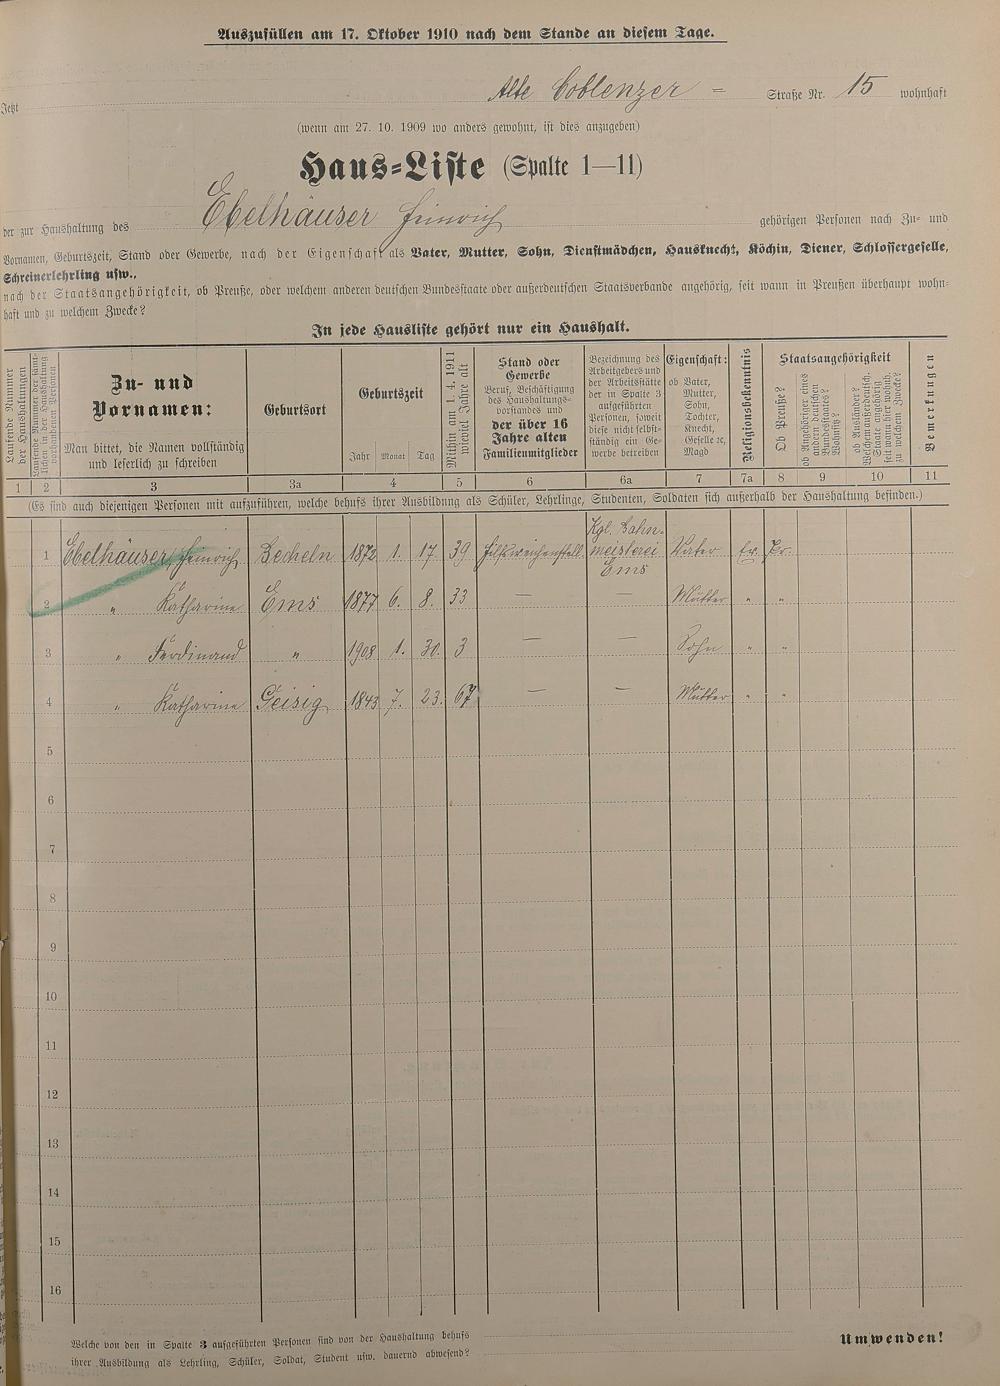 Auszufüllen am 17. Oktober 1910 nach dem Stande an diesem Tage.
Jetzt Alte Coblenzer = Straße Nr. 15 wohnhaft
(wenn am 27. 10. 1909 wo anders gewohnt, ist dies anzugeben)
Haus=Liste (Spalte 1—11)
der zur Haushaltung des Ebelhäuser Heinrich gehörigen Personen nach Zu= und
Vornamen, Geburtszeit, Stand oder Gewerbe, nach der Eigenschaft als Vater, Mutter, Sohn, Dienstmädchen, Hausknecht, Köchin, Diener, Schlossergeselle,
Schreinerlehrling usw.,
nach der Staatsangehörigkeit, ob Preuße, oder welchem anderen deutschen Bundesstaate oder außerdeutschen Staatsverbande angehörig, seit wann in Preußen überhaupt wohn=
haft und zu welchem Zwecke?
In jede Hausliste gehört nur ein Haushalt.
Laufende Nummer
der Haushaltungen
Laufende Nummer der sämt=
lichen in der Haushaltung
vorhandenen Personen
Zu= und
Vornamen:
Man bittet, die Namen vollständig
und leserlich zu schreiben
Geburtsort
Geburtszeit
Jahr Monat Tag
Mithin am 1. 4. 1911
wieviel Jahre alt
Stand oder
Gewerbe
Beruf, Beschäftigung
des Haushaltungs-
vorstandes und
der über 16
Jahre alten
Familienmitglieder
Bezeichnung des
Arbeitgebers und
der Arbeitsstätte
der in Spalte 3
aufgeführten
Personen, soweit
diese nicht selbst=
ständig ein Ge=
werbe betreiben
Eigenschaft:
ob Vater,
Mutter,
Sohn,
Tochter,
Knecht,
Geselle ꝛc,
Magd
Religionsbekenntnis
Staatsangehörigkeit
Ob Preuße?
ob Angehöriger eines
andern deutschen
Bundesstaates?
Wohnsitz?
ob Ausländer?
Welchem außerdeutsch.
Staate angehörig
seit wann hier wohnh.
zu welchem Zwecke?
Bemerkungen
1 2 3 3a 4 5 6 6a 7 7a 8 9 10 11
(Es sind auch diejenigen Personen mit aufzuführen, welche behufs ihrer Ausbildung als Schüler, Lehrlinge, Studenten, Soldaten sich außerhalb der Haushaltung befinden.)
1 Ebelhäuser, Heinrich Becheln 1872 1. 17. 39 Hilfsweichenstell. Kgl. Bahn-
meisterei
Ems Vater Ev. Pr.
2 " Katharine Ems 1877 6. 8. 33 — — Mutter " "
3 " Ferdinand " 1908 1. 30. 3 — — Sohn " "
4 " Katharine Geisig 1843 7. 23. 67 — — Mutter " "
5
6
7
8
9
10
11
12
13
14
15
16
Welche von den in Spalte 3 aufgeführten Personen sind von der Haushaltung behufs
ihrer Ausbildung als Lehrling, Schüler, Soldat, Student usw. dauernd abwesend?
Umwenden!